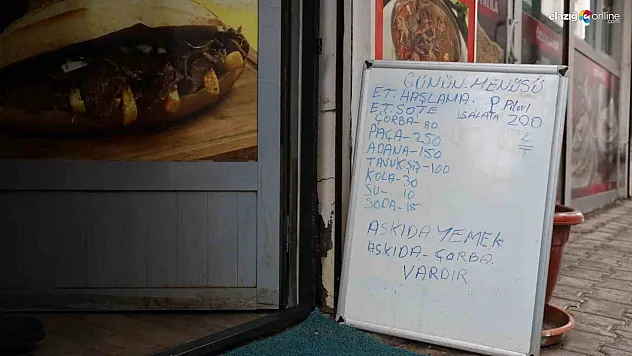 elazığonline.com
GÜNÜN MENÜSÜ
ET. HAŞLAMA.
ET. SOTE P Pilavı
SALATA 200
ÇORBA-80
PAÇA-250
ADANA-150
TAVUK ŞİŞ-100
KOLA-30
SU- 10
SODA-15
ASKIDA.YEMEK
ASKIDA-ÇORBA.
VARDIR